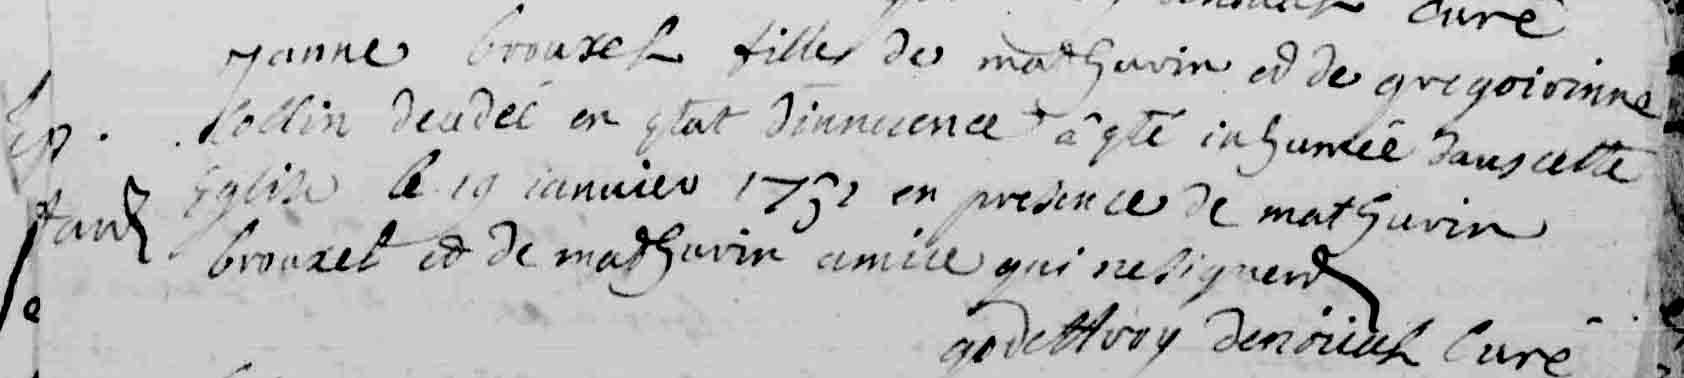 Curé
Janne brouxel fille de mathurin et de gregoirinne
Collin decdéé en etat d'innocence a eté inhumée dans cette
Eglise le 19 ianvier 1752 en presence de mathurin
brouxel et de mathurin amice qui ne signent
godeffroy Curé